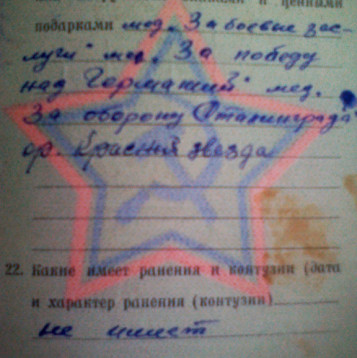 и ценными
подарками мед. „За боевые зас-
луги" мед. „За победу
над Германий" мед.
За оборону Сталинграда
ор. Красная звезда
22. Какие имеет ранения и контузии (дата
и характер ранения (контузии)
не имеет